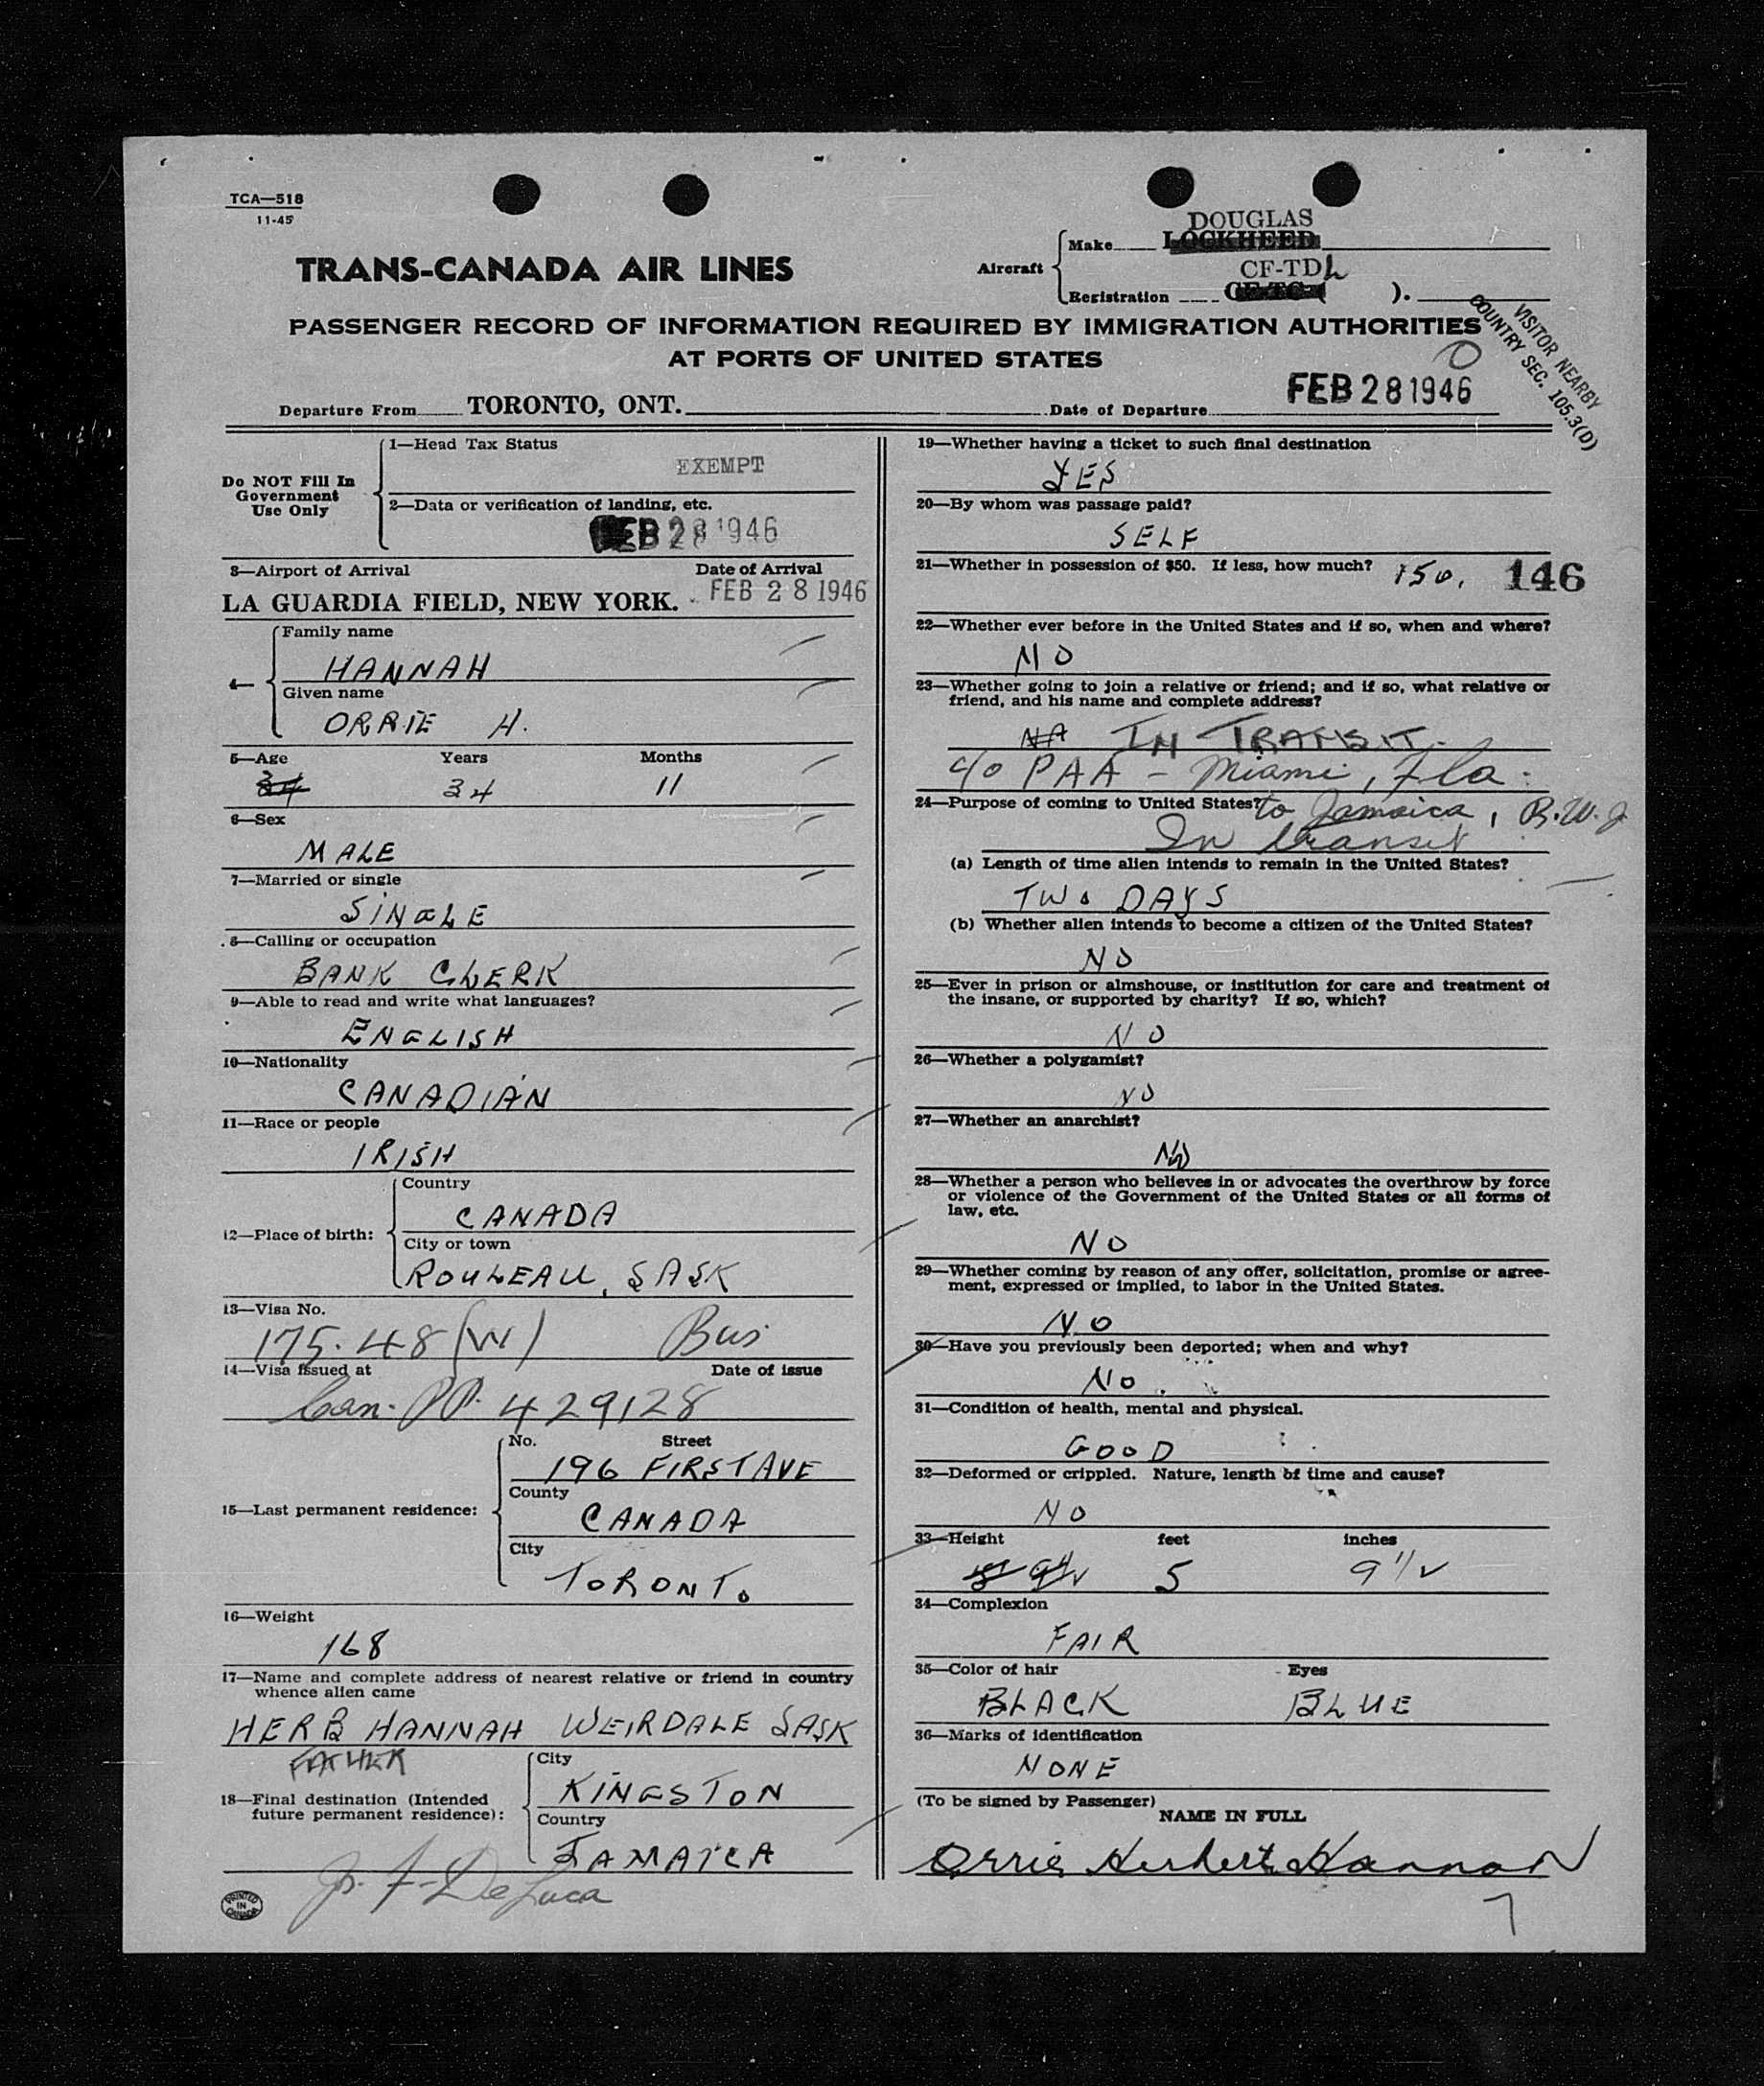 TCA—518
11-45
DOUGLAS
Make LOCKHEED
TRANS-CANADA AIR LINES
Aircraft
CF-TDL
Registration CF-TC-( ).
PASSENGER RECORD OF INFORMATION REQUIRED BY IMMIGRATION AUTHORITIES
AT PORTS OF UNITED STATES
VISITOR NEARBY
COUNTRY SEC. 105.3(D)
Departure From TORONTO, ONT. Date of Departure FEB 28 1946
Do NOT Fill In
Government
Use Only
1—Head Tax Status
EXEMPT
2—Data or verification of landing, etc.
FEB 28 1946
3—Airport of Arrival Date of Arrival
LA GUARDIA FIELD, NEW YORK. FEB 28 1946
4—
Family name
HANNAH
Given name
ORRIE H.
5—Age Years Months
34 34 11
6—Sex
MALE
7—Married or single
SINGLE
8—Calling or occupation
BANK CLERK
9—Able to read and write what languages?
ENGLISH
10—Nationality
CANADIAN
11—Race or people
IRISH
12—Place of birth:
Country
CANADA
City or town
ROULEAU, SASK
13—Visa No.
175.48 (W) Bus
14—Visa issued at Date of issue
Can. PP. 429128
15—Last permanent residence:
No. Street
196 FIRST AVE
County
CANADA
City
TORONTO
16—Weight
168
17—Name and complete address of nearest relative or friend in country
whence alien came
HERB HANNAH WEIRDALE SASK
FATHER
18—Final destination (Intended
future permanent residence):
City
KINGSTON
Country
JAMAICA
De Luca
PRINTED
IN
CANADA
19—Whether having a ticket to such final destination
YES
20—By whom was passage paid?
SELF
21—Whether in possession of $50. If less, how much? 150. 146
22—Whether ever before in the United States and if so, when and where?
NO
23—Whether going to join a relative or friend; and if so, what relative or
friend, and his name and complete address?
NA IN TRANSIT
c/o PAA – Miami, Fla.
24—Purpose of coming to United States? to Jamaica, B.W.I
In transit
(a) Length of time alien intends to remain in the United States?
TWO DAYS
(b) Whether alien intends to become a citizen of the United States?
NO
25—Ever in prison or almshouse, or institution for care and treatment of
the insane, or supported by charity? If so, which?
NO
26—Whether a polygamist?
NO
27—Whether an anarchist?
NO
28—Whether a person who believes in or advocates the overthrow by force
or violence of the Government of the United States or all forms of
law, etc.
NO
29—Whether coming by reason of any offer, solicitation, promise or agree-
ment, expressed or implied, to labor in the United States.
NO
30—Have you previously been deported; when and why?
NO
31—Condition of health, mental and physical.
GOOD
32—Deformed or crippled. Nature, length of time and cause?
NO
33—Height feet inches
5 9 1/2
34—Complexion
FAIR
35—Color of hair Eyes
BLACK BLUE
36—Marks of identification
NONE
(To be signed by Passenger)
NAME IN FULL
Orrie Herbert Hannah
7